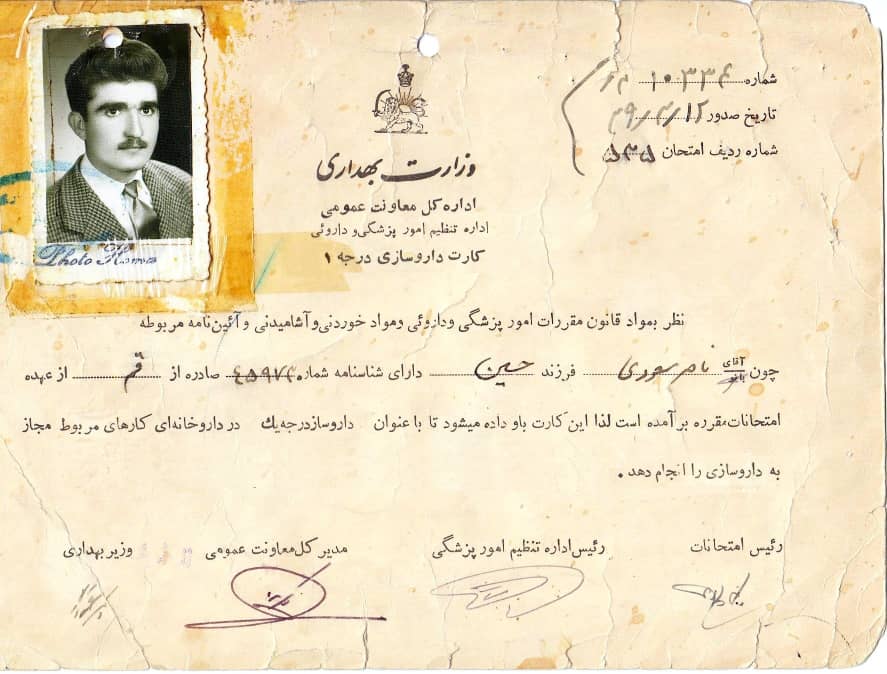 شماره ۱۰۳۳۴
تاریخ صدور ۳۹/۴/۱۲
شماره ردیف امتحان ۵۳۵
وزارت بهداری
اداره کل معاونت عمومی
اداره تنظیم امور پزشکی و داروئی
کارت داروسازی درجه ۱
Photo
نظر بمواد قانون مقررات امور پزشگی وداروئی ومواد خوردنی وآشامیدنی وآئین‌نامه مربوطه
چون آقای بانو ناصر سعودی فرزند حسین دارای شناسنامه شماره ۴۵۹۷۳ صادره از قم از عهده
امتحانات مقرره برآمده است لذا این کارت باو داده میشود تا با عنوان داروساز درجه یك در داروخانه‌ای کارهای مربوط مجاز
به داروسازی را انجام دهد .
رئیس امتحانات
رئیس اداره تنظیم امور پزشگی
مدیر کل معاونت عمومی
وزیر بهداری